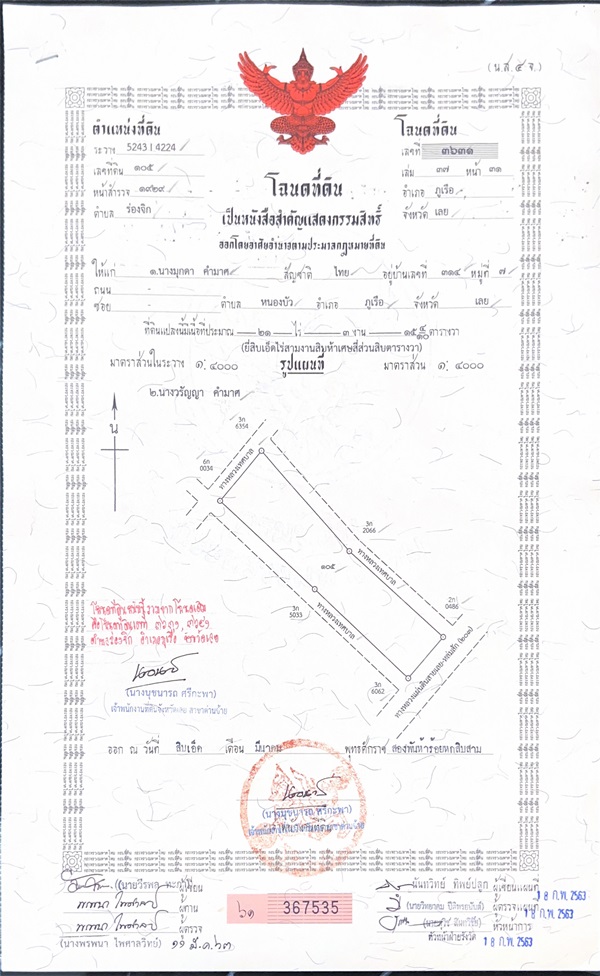 (น.ส. ๔ จ.)
ตำแหน่งที่ดิน
ระวาง 5243 I 4224
เลขที่ดิน ๑๐๕
หน้าสำรวจ ๑๙๒๙
ตำบล ร่องจิก
โฉนดที่ดิน
เลขที่ ๓๖๓๑
เล่ม ๓๗ หน้า ๓๑
อำเภอ ภูเรือ
จังหวัด เลย
โฉนดที่ดิน
เป็นหนังสือสำคัญแสดงกรรมสิทธิ์
ออกโดยอาศัยอำนาจตามประมวลกฎหมายที่ดิน
ให้แก่ ๑.นางมุกดา คำมาศ สัญชาติ ไทย อยู่บ้านเลขที่ ๓๑๔ หมู่ที่ ๗
ถนน -
ซอย - ตำบล หนองบัว อำเภอ ภูเรือ จังหวัด เลย
ที่ดินแปลงนี้มีเนื้อที่ประมาณ ๒๑ ไร่ ๓ งาน ๑๕ ๔/๑๐ ตารางวา
(ยี่สิบเอ็ดไร่สามงานสิบห้าเศษสี่ส่วนสิบตารางวา)
มาตราส่วนในระวาง ๑: ๔๐๐๐ รูปแผนที่ มาตราส่วน ๑: ๔๐๐๐
๒.นางวรัญญา คำมาศ
น
3ก
6354
6ก
0034
ทางหลวงเทศบาล
3ก
2066
ทางหลวงเทศบาล
๑๐๕
2ก
0486
3ก
5033
ทางหลวงเทศบาล
3ก
6062
ทางหลวงแผ่นดินสายเลย-หล่มสัก (๒๐๓)
ตำบลร่องจิก อำเภอภูเรือ จังหวัดเลย
(นางนุชนารถ ศรีกะพา)
เจ้าพนักงานที่ดินจังหวัดเลย สาขาด่านซ้าย
ออก ณ วันที่ สิบเอ็ด เดือน มีนาคม พุทธศักราช สองพันห้าร้อยหกสิบสาม
(นางนุชนารถ ศรีกะพา)
ผู้เขียน
ผู้ทาน
ผู้ตรวจ
(นางพรพนา ไพศาลวิทย์) ๑๑ มี.ค. ๖๓
๖๑ 367535
นันทวิทย์ ทิพย์ปลูก ผู้เขียนแผนที่ 18 ก.พ. 2563
ผู้ตรวจแผนที่ 18 ก.พ. 2563
หัวหน้าการ
หัวหน้าฝ่ายรังวัด 18 ก.พ. 2563